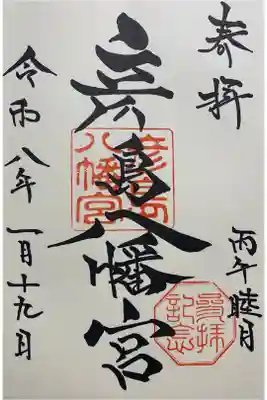 奉拝
丙午睦月
参拝
記念
彦島八幡宮
彦島
八幡宮
令和八年 一月十九日